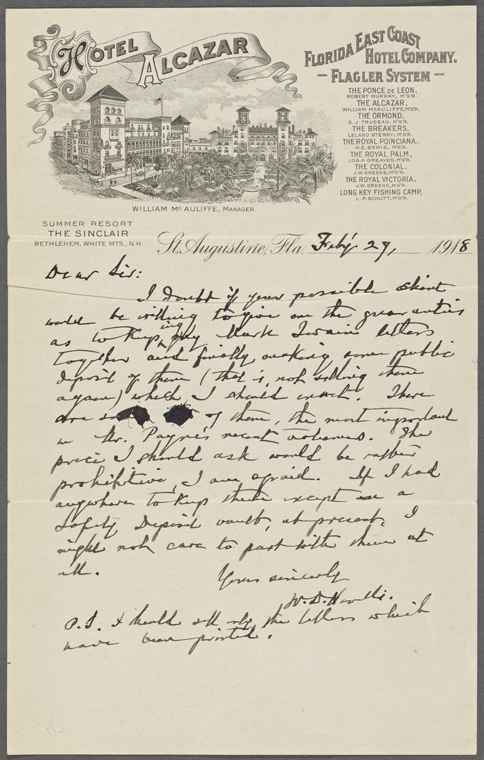 HOTEL ALCAZAR
FLORIDA EAST COAST
HOTEL COMPANY.
— FLAGLER SYSTEM —
THE PONCE DE LEON,
ROBERT MURRAY, M'G'R.
THE ALCAZAR,
WILLIAM McAULIFFE, M'GR.
THE ORMOND,
D. J. TRUDEAU, M'G'R.
THE BREAKERS,
LELAND STERRY, M'G'R.
THE ROYAL POINCIANA,
H. E. BEMIS, M'G'R.
THE ROYAL PALM,
JOS. P. GREAVES, M'G'R.
THE COLONIAL,
J.W. GREENE, M'G'R.
THE ROYAL VICTORIA,
J.W. GREENE, M'G'R.
LONG KEY FISHING CAMP,
L. P. SCHUTT, M'G'R.
WILLIAM McAULIFFE, MANAGER.
SUMMER RESORT
THE SINCLAIR
BETHLEHEM, WHITE MTS., N.H.
St. Augustine, Fla. Feb'y 27, 1918
Dear Sir:
I doubt if your possible client
would be willing to give me the guaranties
as to keeping my Mark Twain letters
together and finally making some public
deposit of them (that is, not selling them
again) which I should exact. There
are of them, the most important
in Mr. Payne's recent volumes. The
price I should ask would be rather
prohibitive, I am afraid. If I had
anywhere to keep them except in a
Safety Deposit vault, at present, I
might not care to part with them at
all.
Yours sincerely
W. D. Howells.
P.S. I should sell only the letters which
have been printed.